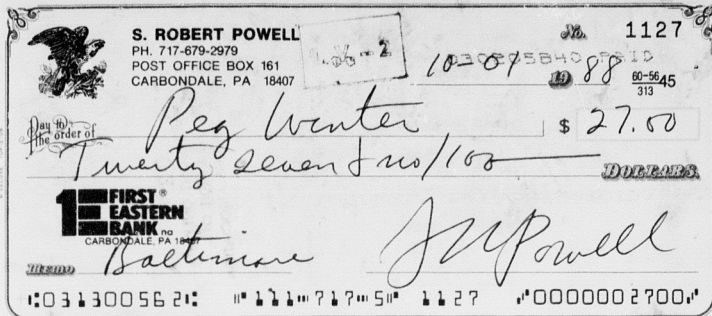 S. ROBERT POWELL
PH. 717-679-2979
POST OFFICE BOX 161
CARBONDALE, PA 18407
No. 1127
10-01 19 88
60-56 45
313
Pay to the order of Peg Winter $ 27.00
Twenty seven & no/100 DOLLARS
FIRST® EASTERN BANK na
CARBONDALE, PA 18407
MEMO Baltimore
S R Powell
⑆031300562⑆ ⑈111⑉717⑉5⑈ 1127 ⑈0000002700⑈